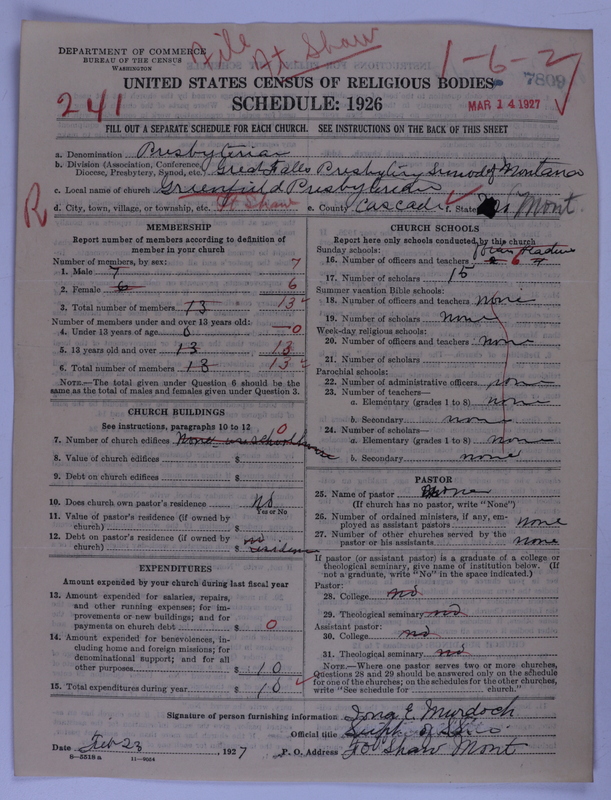 File Ft Shaw
1-6-2
DEPARTMENT OF COMMERCE
BUREAU OF THE CENSUS
WASHINGTON
7809
UNITED STATES CENSUS OF RELIGIOUS BODIES
241
SCHEDULE: 1926
MAR 14 1927
FILL OUT A SEPARATE SCHEDULE FOR EACH CHURCH. SEE INSTRUCTIONS ON THE BACK OF THIS SHEET
a. Denomination Presbyterian
b. Division (Association, Conference, Diocese, Presbytery, Synod, etc. Great Falls Presbytery Synod of Montana
c. Local name of church Greenfield Presbyterian
R
d. City, town, village, or township, etc. Ft Shaw e. County Cascade f. State Mont.
MEMBERSHIP
Report number of members according to definition of member in your church
Number of members, by sex:
1. Male 7 7
2. Female 6 6
3. Total number of members 13 13
Number of members under and over 13 years old:
4. Under 13 years of age 0 0
5. 13 years old and over 13 13
6. Total number of members 13 13
NOTE.—The total given under Question 6 should be the same as the total of males and females given under Question 3.
CHURCH BUILDINGS
See instructions, paragraphs 10 to 12
7. Number of church edifices None use schoolhouse 0
8. Value of church edifices $
9. Debt on church edifices $
10. Does church own pastor's residence no
Yes or No
11. Value of pastor's residence (if owned by church) $
12. Debt on pastor's residence (if owned by church) $ no residence
EXPENDITURES
Amount expended by your church during last fiscal year
13. Amount expended for salaries, repairs, and other running expenses; for improvements or new buildings; and for payments on church debt $ 0
14. Amount expended for benevolences, including home and foreign missions; for denominational support; and for all other purposes $ 10
15. Total expenditures during year $ 10
CHURCH SCHOOLS
Report here only schools conducted by this church
Sunday schools:
16. Number of officers and teachers 6
17. Number of scholars 15
Summer vacation Bible schools:
18. Number of officers and teachers none
19. Number of scholars none
Week-day religious schools:
20. Number of officers and teachers none
21. Number of scholars
Parochial schools:
22. Number of administrative officers none
23. Number of teachers—
a. Elementary (grades 1 to 8) none
b. Secondary none
24. Number of scholars—
a. Elementary (grades 1 to 8) none
b. Secondary none
PASTOR
25. Name of pastor None
(If church has no pastor, write "None")
26. Number of ordained ministers, if any, employed as assistant pastors none
27. Number of other churches served by the pastor or his assistants none
If pastor (or assistant pastor) is a graduate of a college or theological seminary, give name of institution below. (If not a graduate, write "No" in the space indicated.)
Pastor:
28. College no
29. Theological seminary no
Assistant pastor:
30. College no
31. Theological seminary no
NOTE.—Where one pastor serves two or more churches, Questions 28 and 29 should be answered only on the schedule for one of the churches; on the schedules for the other churches, write "See schedule for church."
Signature of person furnishing information Iona E. Murdoch
Official title Supt. of S.S.
Date Feb 23, 1927 P. O. Address Ft Shaw Mont
8—5518 a 11—9064